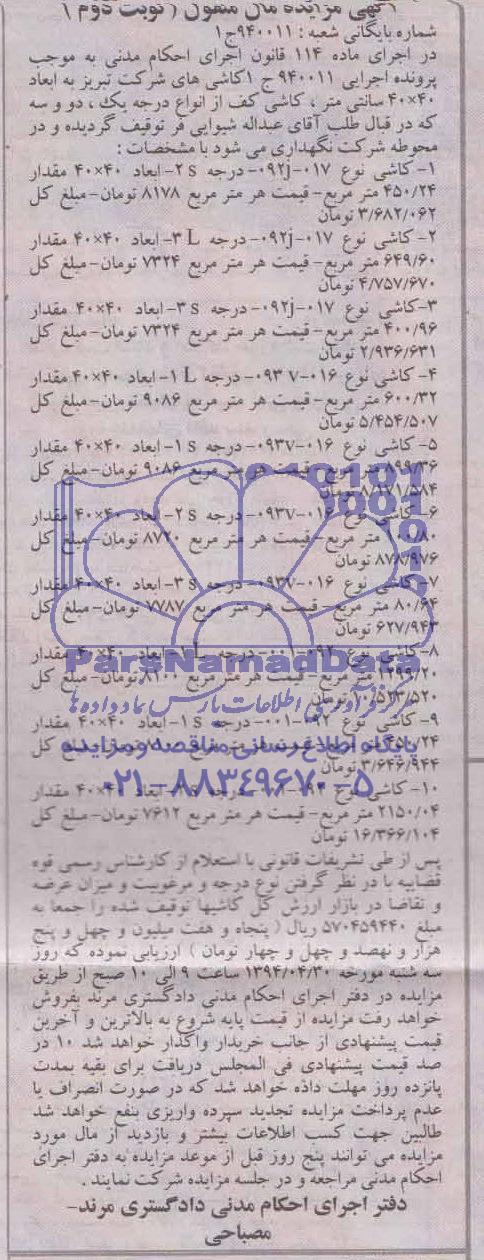 آگهی مزایده مال منقول ( نوبت دوم )
شماره بایگانی شعبه : ۹۴۰۰۱۱ج۱
در اجرای ماده ۱۱۴ قانون اجرای احکام مدنی به موجب
پرونده اجرایی ۹۴۰۰۱۱ ج ۱کاشی های شرکت تبریز به ابعاد
۴۰×۴۰ سانتی متر ، کاشی کف از انواع درجه یک ، دو و سه
که در قبال طلب آقای عبداله شیوایی فر توقیف گردیده و در
محوطه شرکت نگهداری می شود با مشخصات :
۱- کاشی نوع ۰۱۷-۰۹۲j- درجه ۲s- ابعاد ۴۰×۴۰ مقدار
۴۵۰/۲۴ متر مربع- قیمت هر متر مربع ۸۱۷۸ تومان-مبلغ کل
۳/۶۸۲/۰۶۲ تومان
۲- کاشی نوع ۰۱۷-۰۹۲j- درجه ۳L- ابعاد ۴۰×۴۰ مقدار
۶۴۹/۶۰ متر مربع- قیمت هر متر مربع ۷۳۲۴ تومان-مبلغ کل
۴/۷۵۷/۶۷۰ تومان
۳-کاشی نوع ۰۱۷-۰۹۲j- درجه ۳s- ابعاد ۴۰×۴۰ مقدار
۴۰۰/۹۶ متر مربع- قیمت هر متر مربع ۷۳۲۴ تومان-مبلغ کل
۲/۹۳۶/۶۳۱ تومان
۴- کاشی نوع ۰۱۶-۰۹۳۷- درجه ۱L- ابعاد ۴۰×۴۰ مقدار
۶۰۰/۳۲ متر مربع- قیمت هر متر مربع ۹۰۸۶ تومان-مبلغ کل
۵/۴۵۴/۵۰۷ تومان
۵- کاشی نوع ۰۱۶-۰۹۳۷- درجه ۱s- ابعاد ۴۰×۴۰ مقدار
۸۹۹/۳۶ متر مربع- قیمت هر متر مربع ۹۰۸۶ تومان-مبلغ کل
۸/۱۷۱/۵۸۴ تومان
۶- کاشی نوع ۰۱۶-۰۹۳۷- درجه ۲s- ابعاد ۴۰×۴۰ مقدار
۱۰۰/۸۰ متر مربع- قیمت هر متر مربع ۸۷۲۰ تومان-مبلغ کل
۸۷۸/۹۷۶ تومان
۷- کاشی نوع ۰۱۶-۰۹۳۷- درجه ۳s- ابعاد ۴۰×۴۰ مقدار
۸۰/۶۴ متر مربع- قیمت هر متر مربع ۷۷۸۷ تومان-مبلغ کل
۶۲۷/۹۴۳ تومان
۸-کاشی نوع ۰۹۲-۰۰۱- درجه ۱L- ابعاد ۴۰×۴۰ مقدار
ParsNamadData
۱۲۹۹/۲۰ متر مربع- قیمت هر متر مربع ۸۱۰۰ تومان-مبلغ کل
۱۰/۵۲۳/۵۲۰ تومان
مرکز فرآوری اطلاعات پارس نماد داده ها
۹- کاشی نوع ۰۹۲-۰۰۱- درجه ۱s- ابعاد ۴۰×۴۰ مقدار
۴۵۰/۲۴ متر مربع- قیمت هر متر مربع ۸۱۰۰ تومان-مبلغ کل
پایگاه اطلاع رسانی مناقصه و مزایده
۳/۶۴۶/۹۴۴ تومان
۰۲۱-۸۸۳۴۹۶۷۰-۵
۱۰- کاشی نوع درجه ابعاد ۴۰×۴۰ مقدار
۲۱۵۰/۰۴ متر مربع- قیمت هر متر مربع ۷۶۱۲ تومان-مبلغ کل
۱۶/۳۶۶/۱۰۴ تومان
پس از طی تشریفات قانونی با استعلام از کارشناس رسمی قوه
قضاییه با در نظر گرفتن نوع درجه و مرغوبیت و میزان عرضه
و تقاضا در بازار ارزش کل کاشیها توقیف شده را جمعا به
مبلغ ۵۷۰۴۵۹۴۴۰ ریال ( پنجاه و هفت میلیون و چهل و پنج
هزار و نهصد و چهل و چهار تومان ) ارزیابی نموده که روز
سه شنبه مورخه ۱۳۹۴/۰۴/۳۰ ساعت ۹ الی ۱۰ صبح از طریق
مزایده در دفتر اجرای احکام مدنی دادگستری مرند بفروش
خواهد رفت مزایده از قیمت پایه شروع به بالاترین و آخرین
قیمت پیشنهادی از جانب خریدار واگذار خواهد شد ۱۰ در
صد قیمت پیشنهادی فی المجلس دریافت برای بقیه بمدت
پانزده روز مهلت داده خواهد شد که در صورت انصراف یا
عدم پرداخت مزایده تجدید سپرده واریزی بنفع خواهد شد
طالبین جهت کسب اطلاعات بیشتر و بازدید از مال مورد
مزایده می توانند پنج روز قبل از موعد مزایده به دفتر اجرای
احکام مدنی مراجعه و در جلسه مزایده شرکت نمایند .
دفتر اجرای احکام مدنی دادگستری مرند-
مصباحی